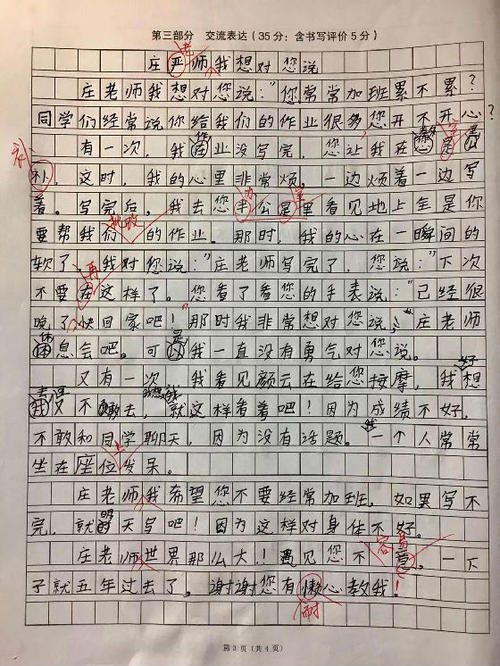 第三部分 交流表达(35分;含书写评价5分)
庄严师我想对您说
庄老师我想对您说:"你常常加班累不累?
同学们经常说你给我们的作业很多您开不开心?
有一次,我在业没写完,您让我在
补,这时,我的心里非常烦。一边烦着一边写
着。写完后,我去您办公室里看见地上全是你
要帮我们批改的作业。那时,我的心在一瞬间的
软了,我对您说:"庄老师写完了,您说:"下次
不要在这样了。您看了看您的手表说:"已经很
晚了快回家吧!那时我非常想对您说:庄老师
休息会吧。可是我一直没有勇气对您说。
又有一次,我看见颜云在给您按摩,我想
又不敢去,就这样看着吧!因为成绩不好,
不敢和同学聊天,因为没有话题。一个人常常
坐在座位发呆。
庄老师我希望您不要经常加班,如果写不
完,就明天写吧!因为这样对身体不好。
庄老师世界那么大!遇见您不容易。一下
子就五年过去了。谢谢您有懒心教我!
耐
第3页(共4页)